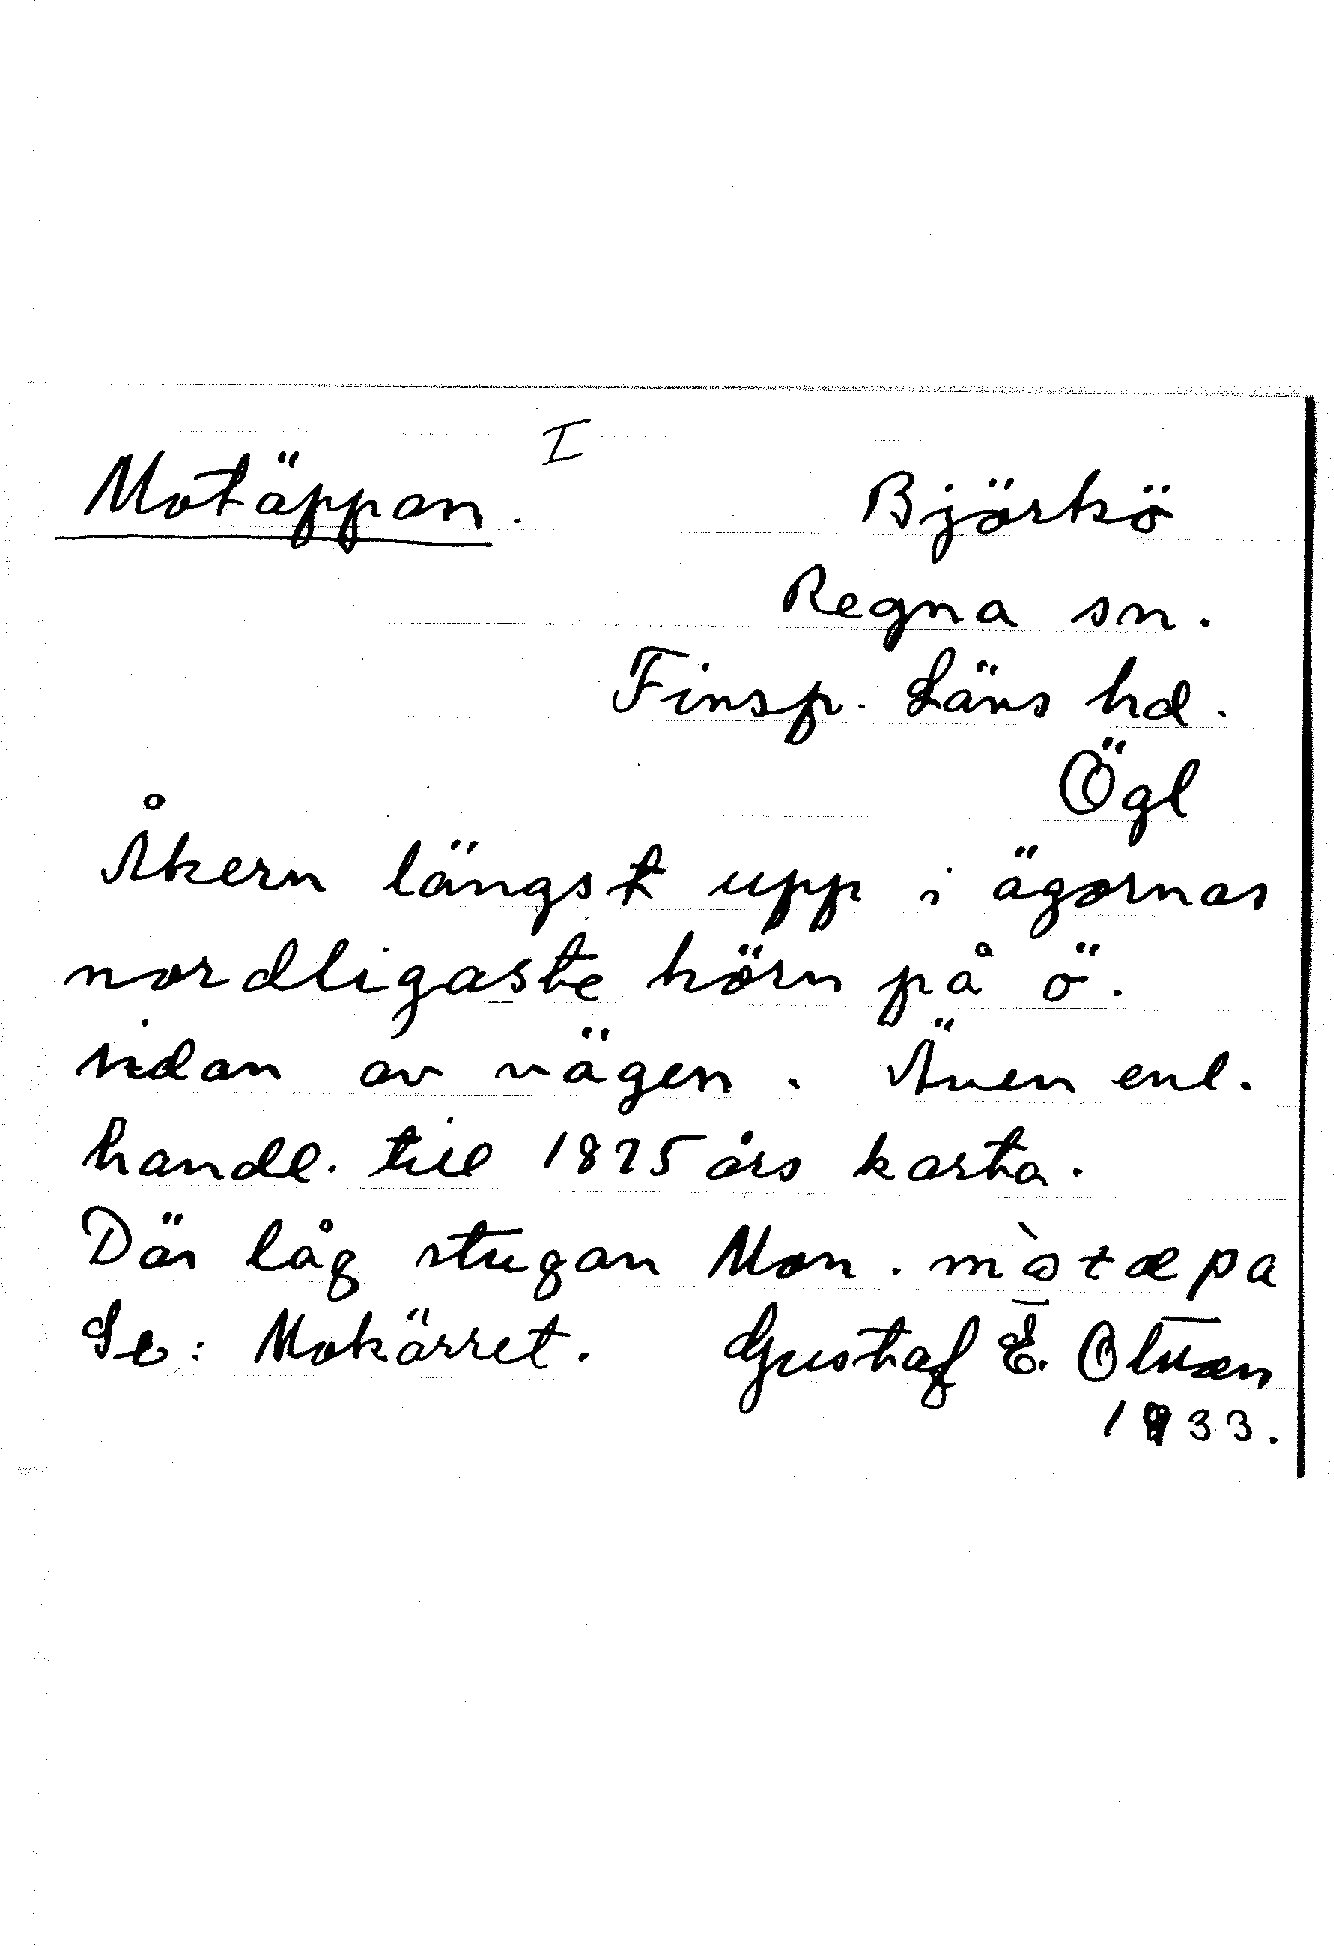 I
Motäppan. Björkö
Regna sn.
Finsp. Läns hd.
Ögl
Åkern längst upp i ägornas
nordligaste hörn på ö.
sidan av vägen. Även enl.
handl. till 1825 års karta.
Där låg stugan Mon.
Se: Mokärret. Gustaf E.
1933.